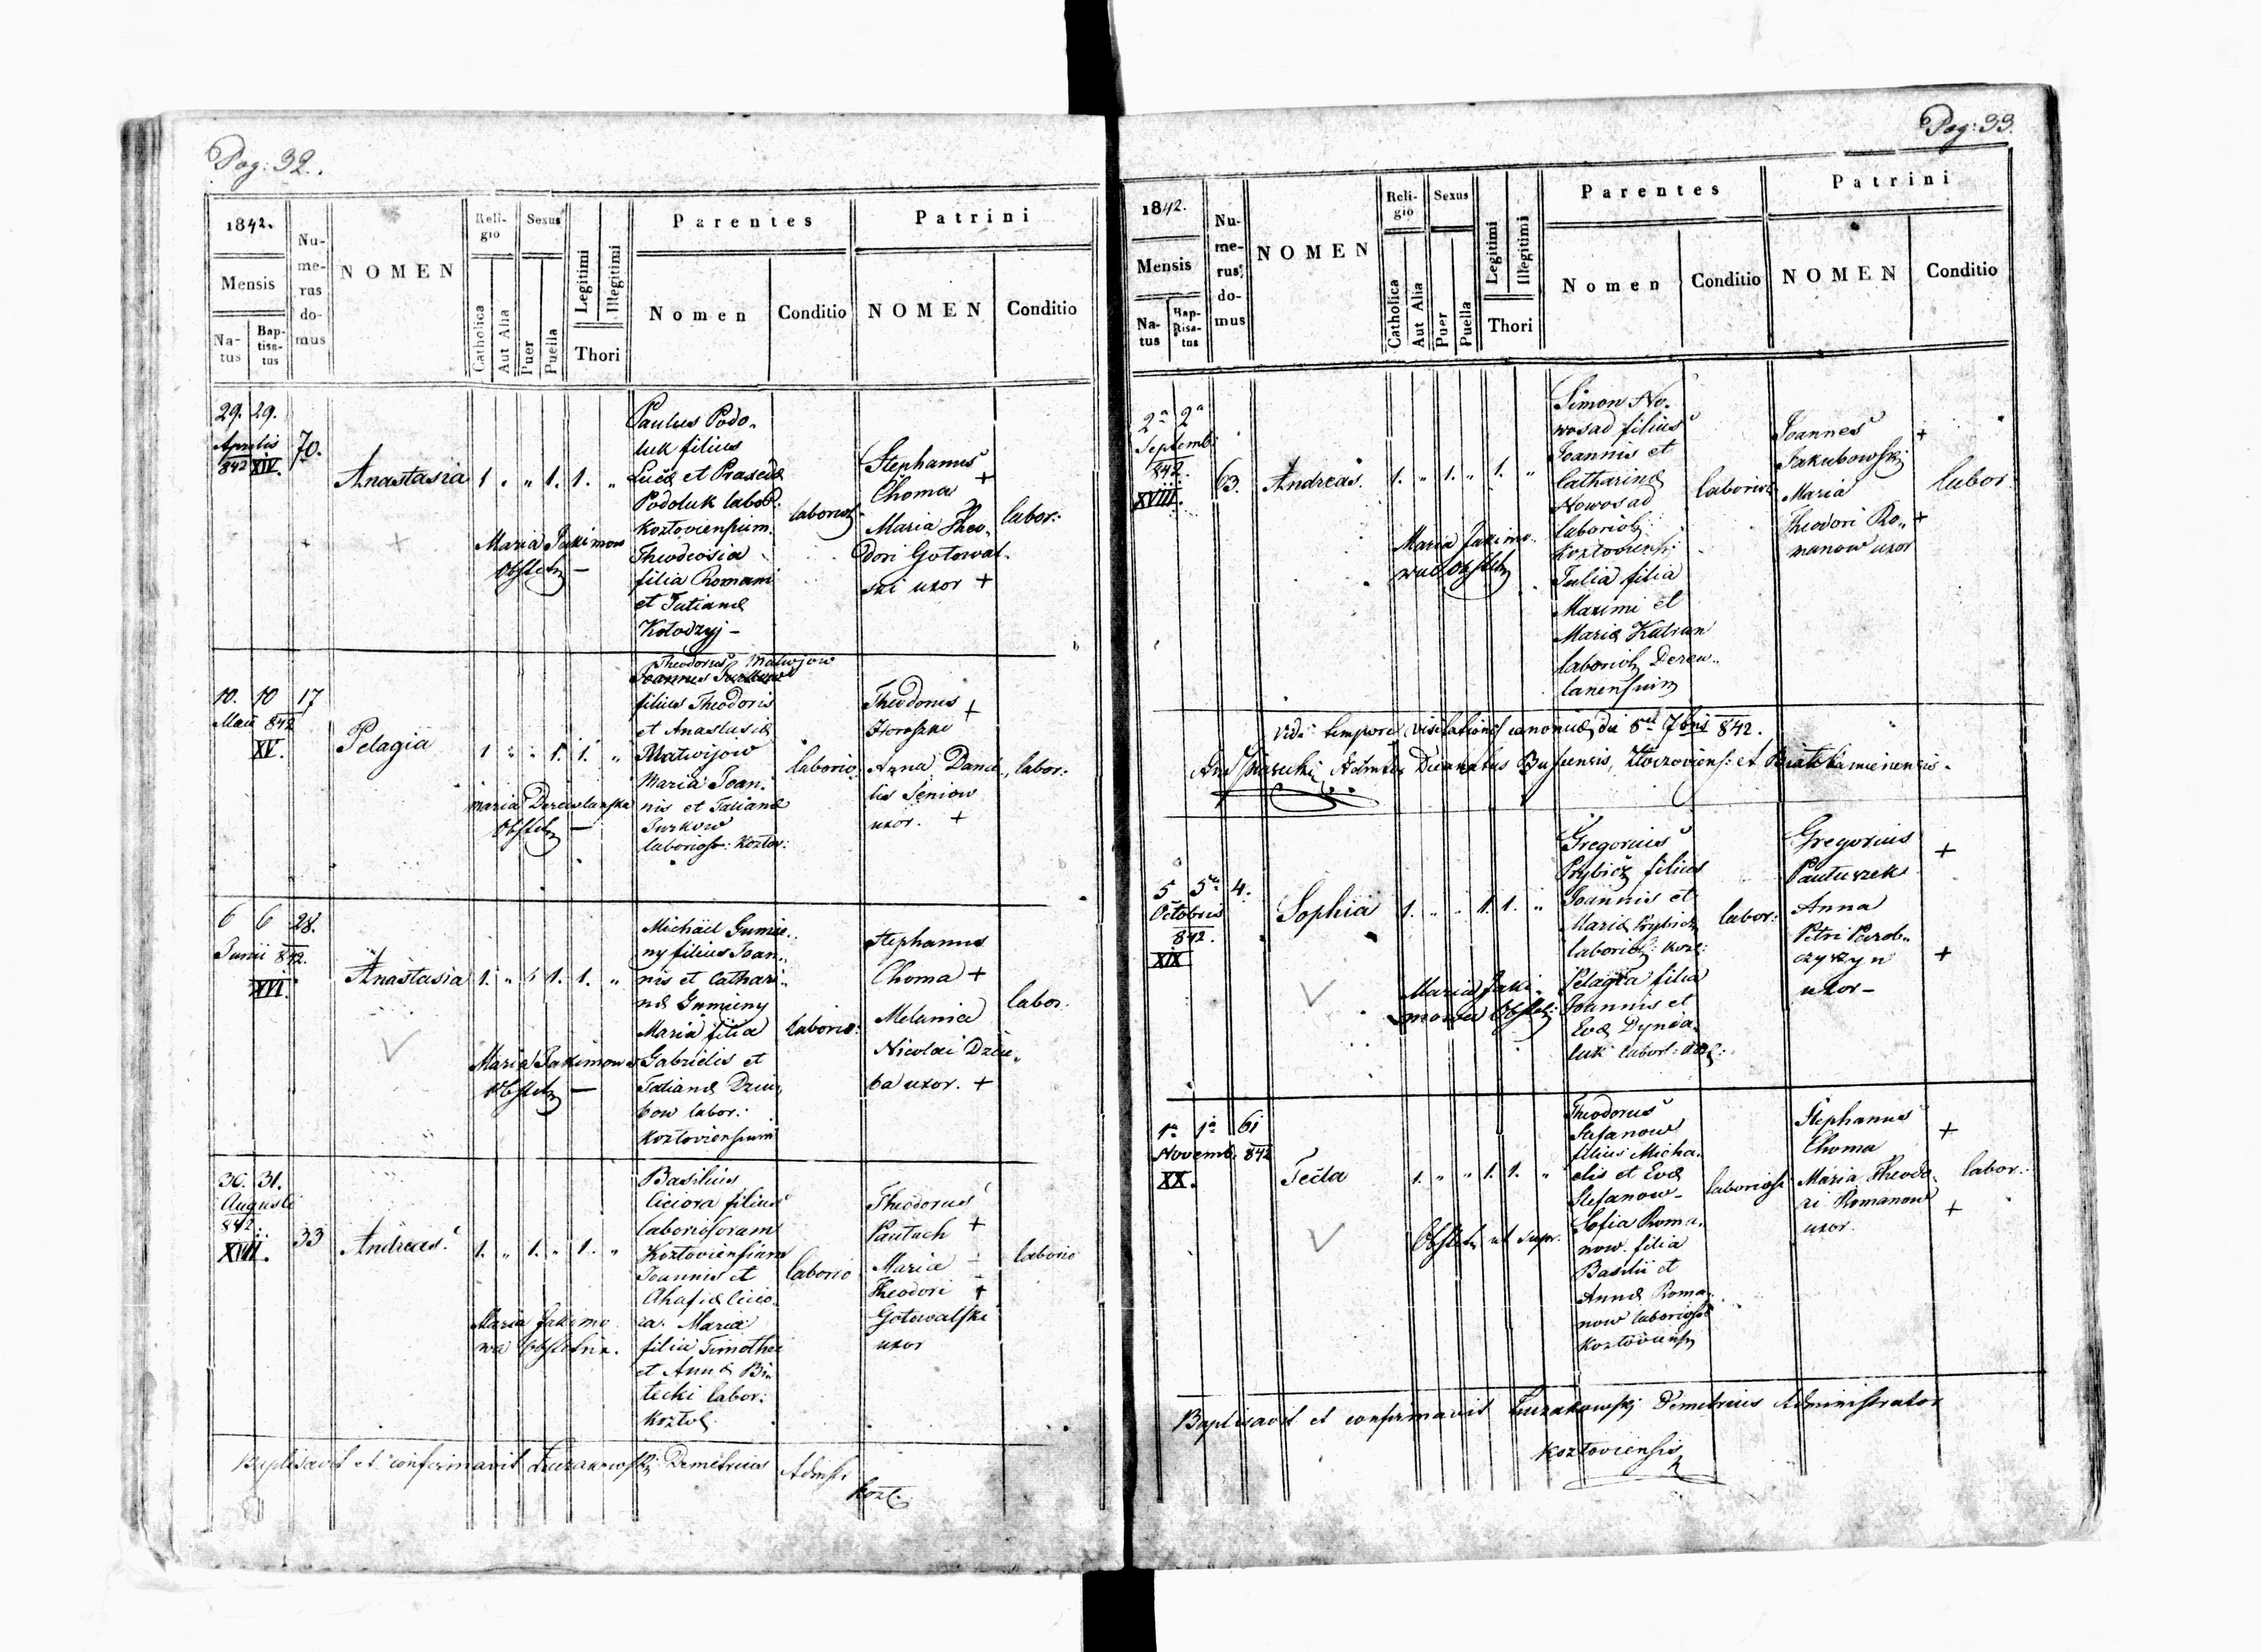 Pag: 32.
1842.
Mensis
Na-
tus
Bap-
tisa-
tus
Nu-
me-
rus
do-
mus
NOMEN
Reli-
gio
Catholica
Aut Alia
Sexus
Puer
Puella
Legitimi
Illegitimi
Thori
Parentes
Nomen
Conditio
Patrini
NOMEN
Conditio
29. 29.
Aprilis
842 XIV.
70.
Anastasia
1 " " 1. 1. "
Maria Jakimow
Paulus Podo-
luk filius
Lucæ et Praxedæ
Podoluk labor:
Kozłoviensium
Theodosia
filia Romani
et Tatianæ
Kołodzyj -
Stephanus
Choma +
Maria Theo-
dori Gotowal.
ski uxor +
labor:
10. 10 17
Maii 842
XV.
Pelagia
1 " " 1. 1. "
Maria Derewlanska
Theodorus Matwijow
filius Theodoris
et Anastasiæ
Matwijow
Maria Joan-
nis et Tatianæ
Jurkow
laborios: Kozłov:
laborio:
Theodorus +
Horoszko
Anna Danie-
lis Seniow
uxor. +
labor:
6 6 28.
Junii 842.
XVI.
Anastasia
1. " " 1. 1. "
Maria Jakimowa
Michäel Gumie-
ny filius Joan-
nis et Cathari-
næ Gumieny
Maria filia
Gabrielis et
Tatianæ Dziu-
bow labor:
Kozłoviensium
laborio:
Stephanus
Choma +
Melania
Nicolai Dziu-
ba uxor. +
labor.
30. 31.
Augusti
842.
XVII.
33
Andreas.
1. " 1. " 1. "
Maria Jakimo
wa obstetrix.
Basilius
Ciciora filius
laboriosorum
Kozłoviensium
Joannis et
Ahafiæ Cicio-
ra. Maria
filia Timothei
et Annæ Bi-
lecki labor:
laborio
Theodorus
Pautach +
Maria
Theodori +
Gotowalski
uxor
laborio
Baptisavit et confirmavit Demetrius Admstr
Kozł.
Pag: 33.
1842.
Mensis
Na-
tus
Bap-
tisa-
tus
Nu-
me-
rus
do-
mus
NOMEN
Reli-
gio
Catholica
Aut Alia
Sexus
Puer
Puella
Legitimi
Illegitimi
Thori
Parentes
Nomen
Conditio
Patrini
NOMEN
Conditio
2a 2a
Septemb:
842.
XVIII.
63.
Andreas.
1. " 1. " 1. "
Maria Jakimo-
Simon No-
wosad filius
Joannis et
Catharinæ
Nowosad
Julia filia
Maximi et
Mariæ Kutran
Joannes +
Jakubowski
Maria
Theodori Ro- +
manow uxor
labor
Vidi tempore visitationis canonicæ die 5a 7bris 842.
Decanatus Buscensis, Złoczoviens: et Białokamienensis.
5 5a 4.
Octobris
842.
XIX
Sophia
1. " " 1. 1. "
Maria Jaki-
mowa
Gregorius
Prybicz filius
Joannis et
Mariæ Prybicz
Pelagia filia
Joannis et
Evæ Dynia-
luk
labor:
Gregorius +
Pautuszek
Anna
Petri Parob-
czyszyn +
uxor -
1a 1a 61
Novemb. 842
XX.
Tecla
1. " " 1. 1. "
Obstetr ut supr.
Theodorus
Stefanow
filius Micha-
elis et Evæ
Stefanow-
Sofia Roma-
now filia
Basilii et
Annæ Roma-
now
Stephanus +
Choma
Maria Theodo-
ri Romanow +
uxor.
labor:
Baptisavit et confirmavit Demetrius Administrator
Kozłoviensis